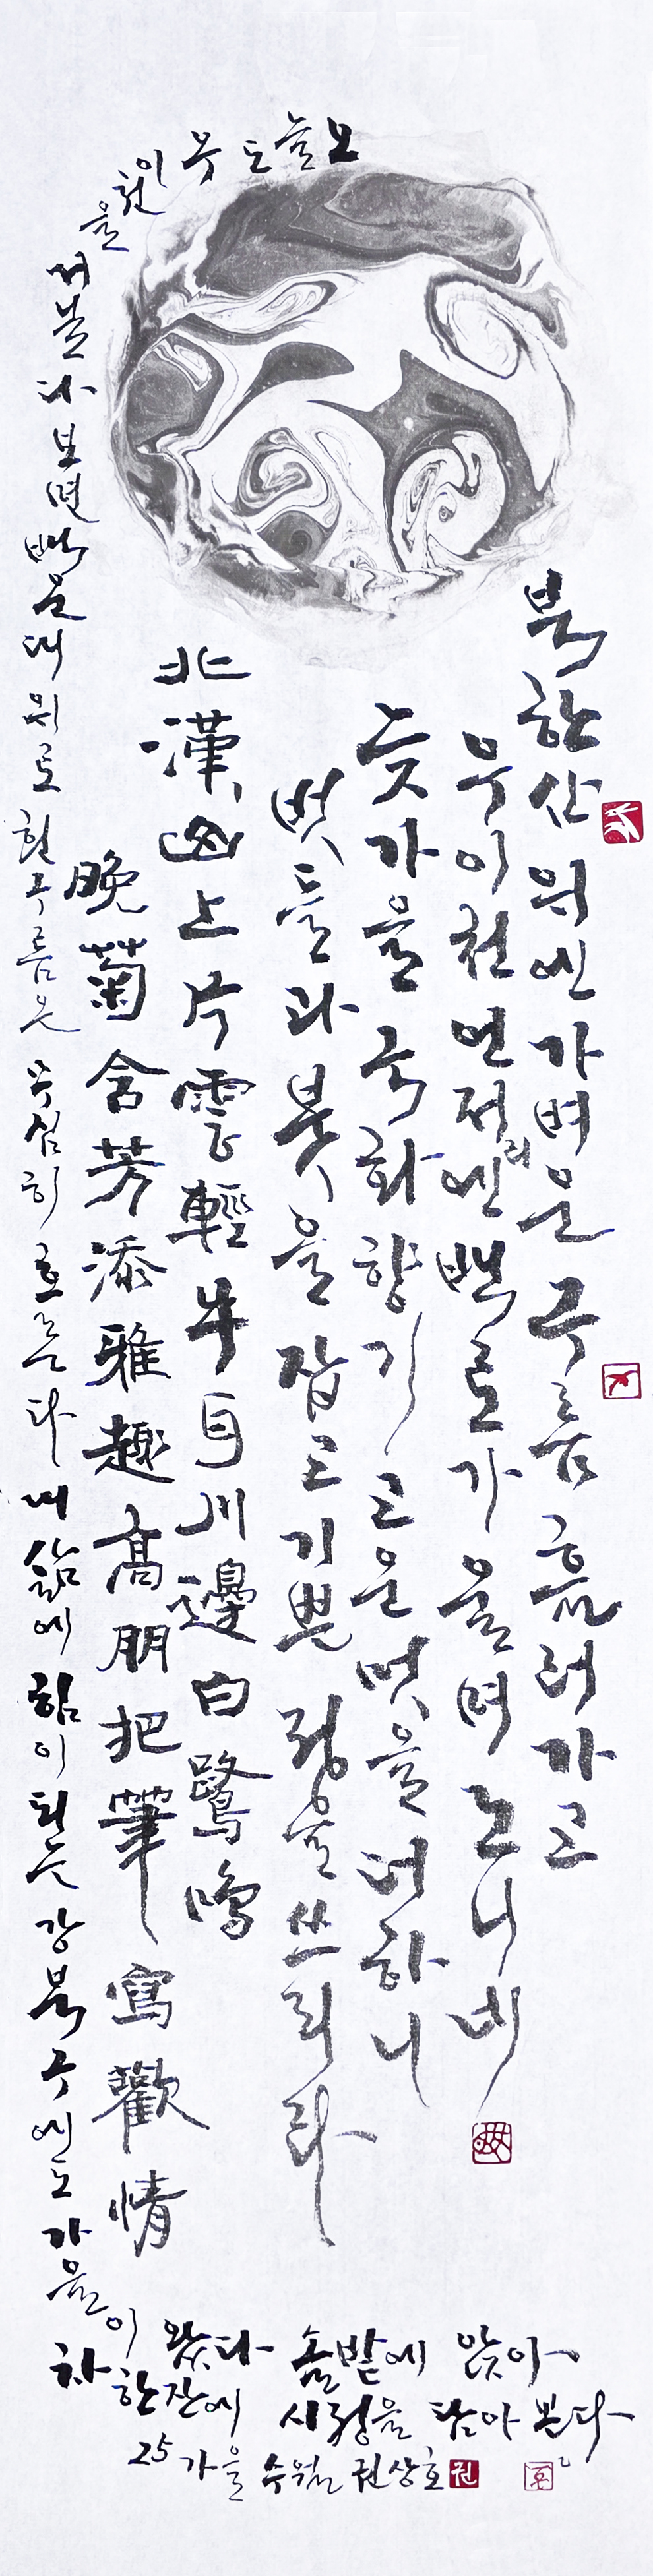 북한산 위엔 가벼운 구름 흘러가고
우이천 언저리엔 백로가 울며 노니네
늦가을 국화 향기 고운 멋을 더하니
벗들과 붓을 잡고 기쁜 정을 쓰리라
北漢山上片雲輕牛耳川邊白鷺鳴
晩菊含芳添雅趣高朋把筆寫歡情
오늘도 우이천을 거닐다 보면 백운대 위로 흰구름은 무심히 흐른다 내 삶에 힘이 되는 강북구에도 가을이
왔다 솔밭에 앉아
차 한잔에 시정을 담아 본다
25 가을 수월 권상호 권